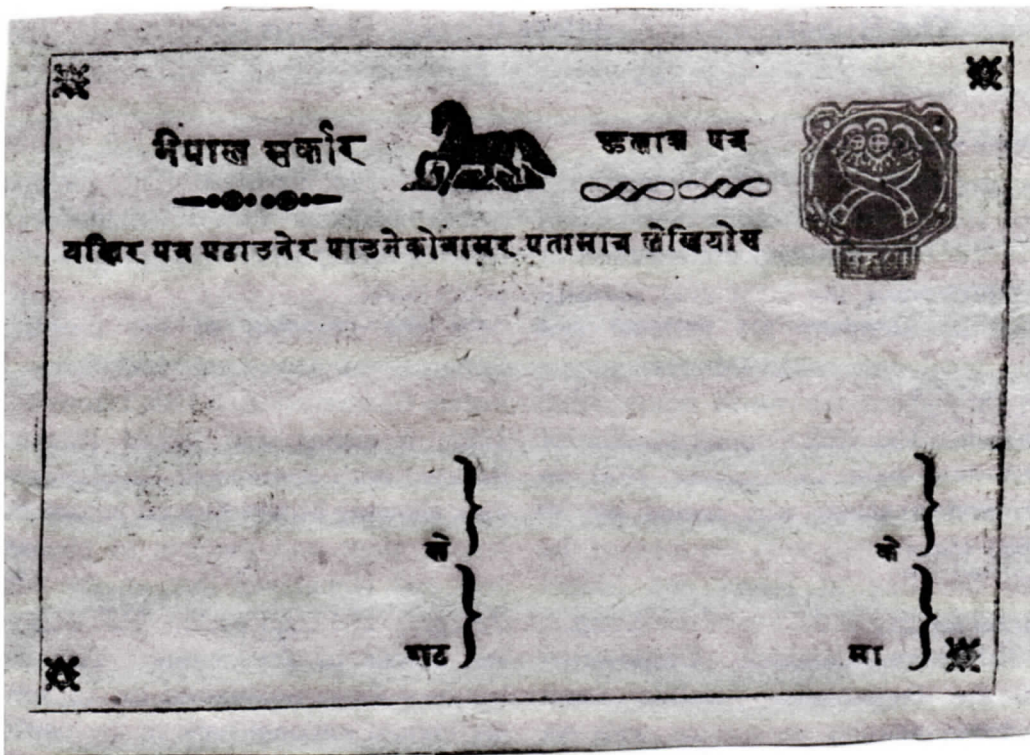 नेपाल सर्कार
पत्र
यस्तिर पत्र पठाउनेर पाउनेको नामर पतामात्र लेखियोस
ले
को
बाट
मा